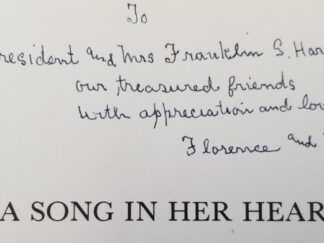 To
resident and Mrs Franklin S. Har
our treasured friends
with appreciation and lo
Florence and
A SONG IN HER HEAR